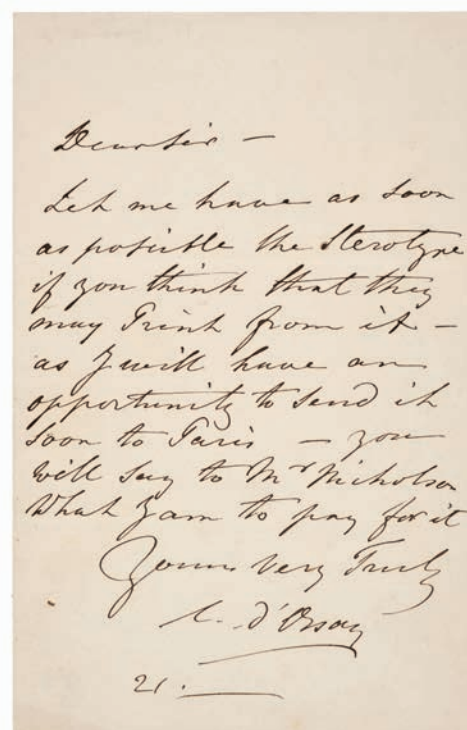 Dear Sir –
Let me have as soon
as posisble the Sterotype
if you think that they
may Print from it –
as I will have an
opportunity to send it
soon to Paris – you
will say to Mr Nicholson
What I am to pay for it
Yours very Truly
C. d'Orsay
21.